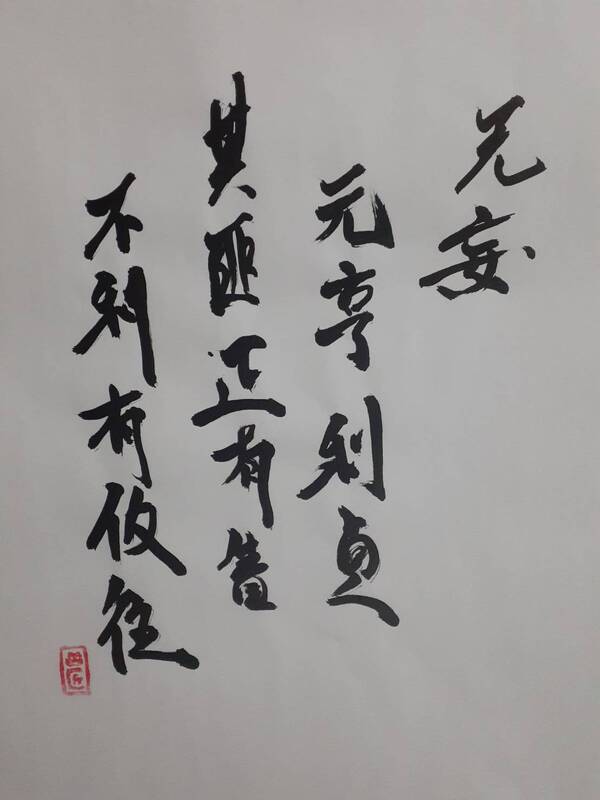 无妄
元亨利貞
其匪正有眚
不利有攸往